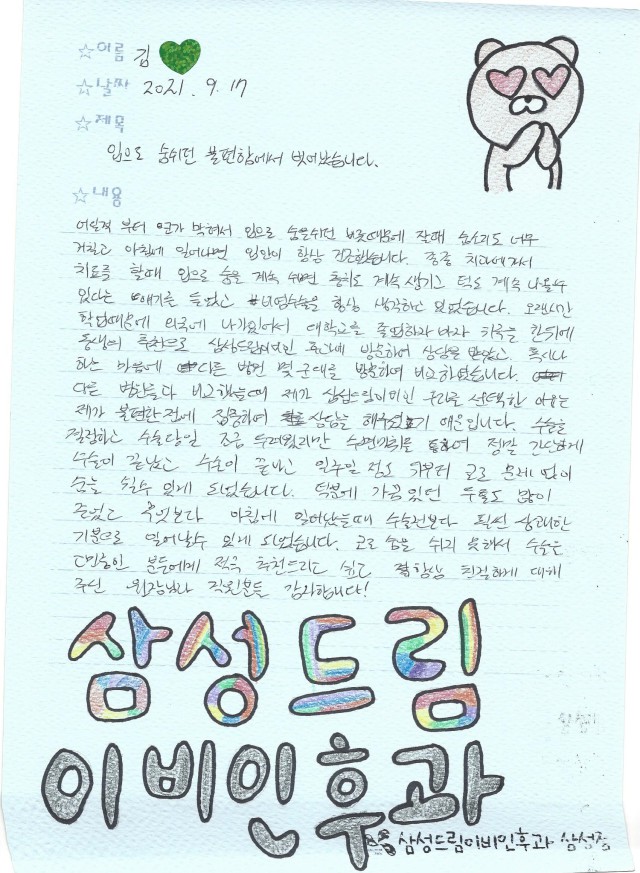 ☆이름 김
☆날짜 2021. 9. 17
☆제목
입으로 숨쉬던 불편함에서 벗어났습니다.
☆내용
어릴적 부터 코가 막혀서 입으로 숨을쉬던 버릇때문에 잘때 숨소리도 너무
거칠고 아침에 일어나면 입안이 항상 건조했습니다. 종종 치과에가서
치료를 할때 입으로 숨을 계속 쉬면 충치도 계속 생기고 턱도 계속 나올수
있다는 얘기를 들었고 비염수술을 항상 생각하고 있었습니다. 오랜시간
학업때문에 외국에 나가있어서 대학교를 졸업하자마자 귀국을 한뒤에
동생의 추천으로 삼성드림이비인후과에 방문하여 상담을 받았고. 혹시나
하는 마음에 다른 병원 몇 군데를 방문하여 비교하였습니다.
다른 병원들과 비교했을때 제가 삼성드림이비인후과를 선택한 이유는
제가 불편한점에 집중하여 상담을 해주셨기 때문입니다. 수술을
결정하고 수술당일 조금 두려웠지만 수면마취를 하여 정말 간단하게
수술이 끝났고 수술이 끝나고 일주일 정도 뒤부터 코로 문제 없이
숨을 쉴수 있게 되었습니다. 덕분에 가끔 있던 두통도 많이
줄었고 무엇보다 아침에 일어났을때 수술전보다 훨씬 상쾌한
기분으로 일어날수 있게 되었습니다. 코로 숨을 쉬지 못해서 수술을
고민중인 분들에게 적극 추천드리고 싶고 항상 친절하게 대해
주신 원장님과 직원분들 감사합니다!
삼성드림
이비인후과
삼성드림이비인후과 삼성점